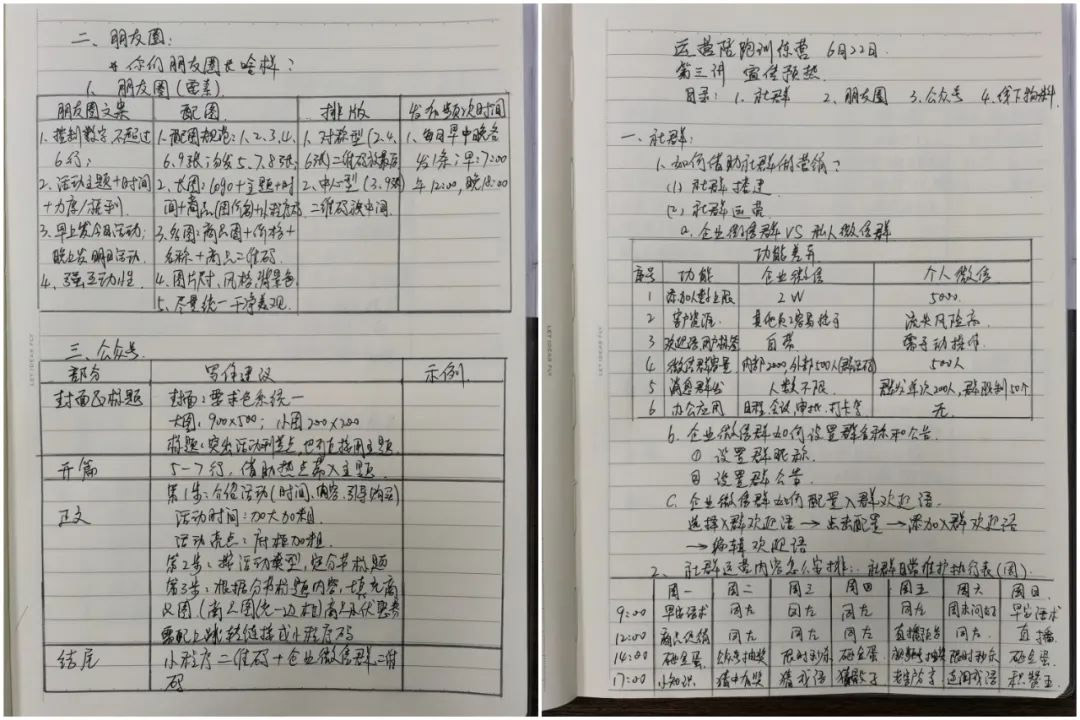 二、朋友圈:
* 你们朋友圈长啥样?
1. 朋友圈(要素)
朋友圈文案 配图 排版 发布频次时间
1、控制数字不超过6行;
2、活动主题+时间+力度/福利.
3、早上发今日活动;晚上发明日活动.
4、强互动性.
1、配图规范:1、2、3、4、6、9张;勿发5、7、8张;
2、长图:logo+主题+时间+商品(图价创)+小程序码
3、多图:商品图+价格+名称+商品二维码.
4、图片尺寸、风格、背景色
5、尽量统一干净美观.
1、对称型(2、4、6张)二维码放最后
2、中心型(3、9张)二维码放中间.
1、每日早中晚各发1条;早:7:00
午12:00,晚18:00
三、公众号.
部分 写作建议 示例
封面及标题 封面:要求色系统一
大图:900×500;小图200×200
标题:突出活动利益点,也可直接用主题.
开篇 5-7行,借助热点带入主题.
正文 第1步:介绍活动(时间、内容、引导购买)
活动时间:加大加粗.
活动亮点:标框加粗.
第2步:按活动类型,定分节标题
第3步:根据分节标题内容,填充商
及图.(商品图统一边框)商品及优惠券
需配上跳转链接或小程序码
结尾 小程序二维码+企业微信群二维
码
LET IDEAR FLY
运营陪跑训练营 6月22日.
第三讲 宣传预热.
目录: 1、社群 2、朋友圈 3、公众号 4、线下物料
一、社群:
1、如何借助社群做营销?
(1) 社群搭建
(2) 社群运营
a、企业微信群VS私人微信群
功能差异
序号 功能 企业微信 个人微信
1 添加人数上限 2W 5000.
2 客户资源 其他员工容易接手 流失风险高.
3 欢迎语、用户标签 自带 需手动操作.
4 微信群容量 内部2000,外部500人(群活码) 500人
5 消息群发 人数不限. 群发单次200人,群限制50个
6 办公应用 日程、会议、审批、打卡等 无.
b、企业微信群如何设置群名称和公告.
① 设置群昵称.
② 设置群公告.
c、企业微信群如何配置入群欢迎语.
选择入群欢迎语→点击配置→添加入群欢迎语
→编辑欢迎语
2、社群运营内容怎么安排:社群日常维护执行表(图).
周一 周二 周三 周四 周五 周六 周日.
9:00 早安话术 同左 同左 同左 同左 周末问好 早安话术
12:00 商品促销 同左 同左 同左 直播预告 同左. 直播.
14:00 砸金蛋. 公众号抽奖 限时秒杀 砸金蛋. 抽奖 限时秒杀 砸金蛋.
17:00 小知识 猜中有奖 猜成语 积赞王.
LET IDEAR FLY